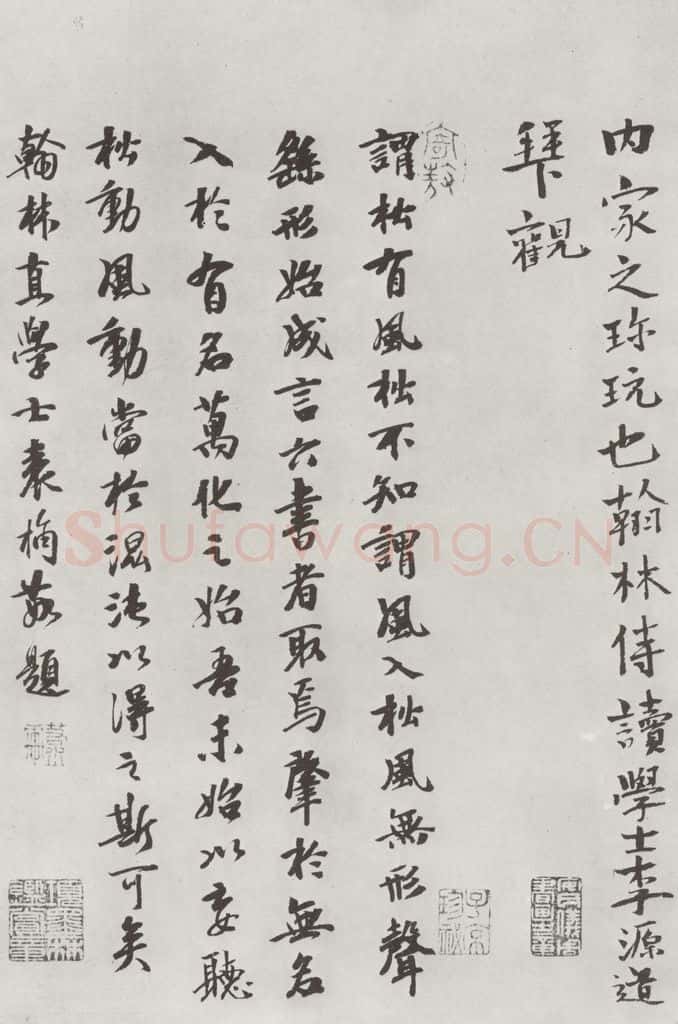 内家之珎玩也翰林侍讀學士李源道
拜觀
謂松有風松不知謂風入松風無形聲
繇形始成言六書者取焉肇於無名
入於有名萬化之始吾未始以妄聽
松動風動當於混沌以得之斯可矣
翰林直學士袁桷敬題
安儀周書畫之章
子京珍秘
項墨林鑑賞章
Shufawang.CN